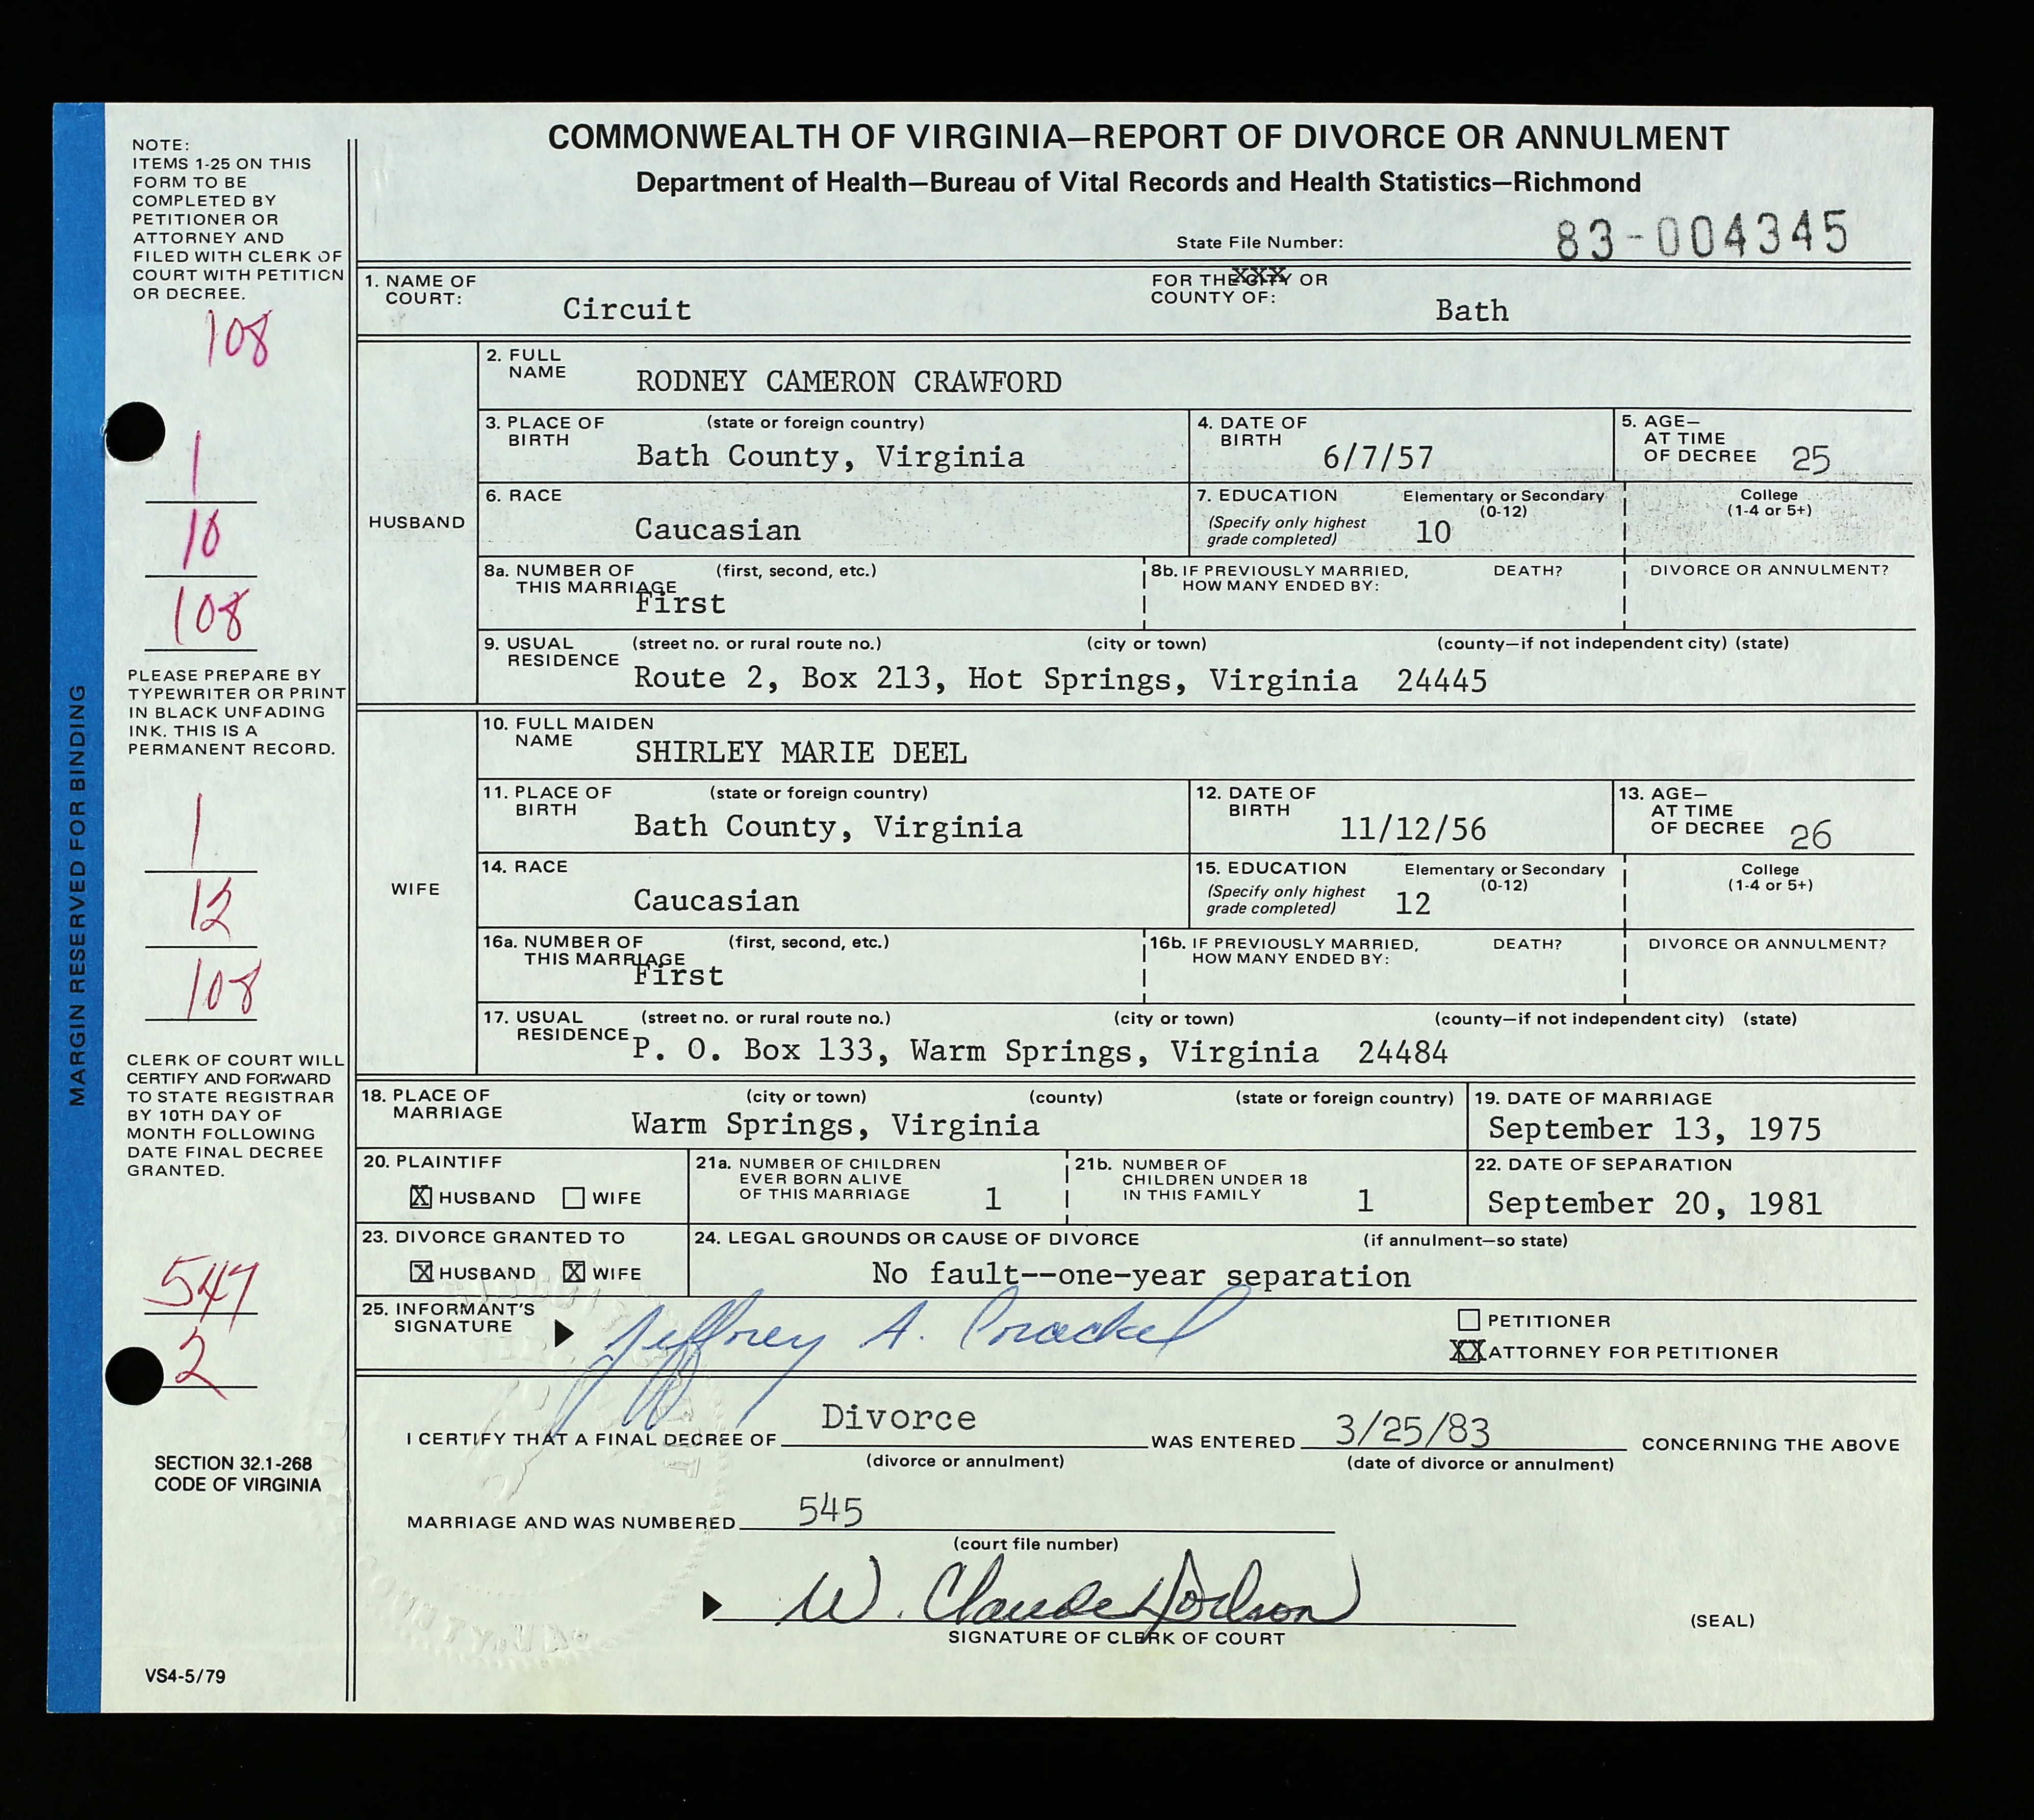 COMMONWEALTH OF VIRGINIA—REPORT OF DIVORCE OR ANNULMENT
Department of Health—Bureau of Vital Records and Health Statistics—Richmond
State File Number: 83-004345
NOTE:
ITEMS 1-25 ON THIS
FORM TO BE
COMPLETED BY
PETITIONER OR
ATTORNEY AND
FILED WITH CLERK OF
COURT WITH PETITION
OR DECREE.
108
1
10
108
PLEASE PREPARE BY
TYPEWRITER OR PRINT
IN BLACK UNFADING
INK. THIS IS A
PERMANENT RECORD.
1
12
108
CLERK OF COURT WILL
CERTIFY AND FORWARD
TO STATE REGISTRAR
BY 10TH DAY OF
MONTH FOLLOWING
DATE FINAL DECREE
GRANTED.
547
2
SECTION 32.1-268
CODE OF VIRGINIA
VS4-5/79
MARGIN RESERVED FOR BINDING
1. NAME OF COURT: Circuit
FOR THE CITY OR COUNTY OF: Bath
XXX
HUSBAND
2. FULL NAME RODNEY CAMERON CRAWFORD
3. PLACE OF BIRTH (state or foreign country) Bath County, Virginia
4. DATE OF BIRTH 6/7/57
5. AGE— AT TIME OF DECREE 25
6. RACE Caucasian
7. EDUCATION (Specify only highest grade completed) Elementary or Secondary (0-12) 10
College (1-4 or 5+)
8a. NUMBER OF THIS MARRIAGE (first, second, etc.) First
8b. IF PREVIOUSLY MARRIED, HOW MANY ENDED BY: DEATH? DIVORCE OR ANNULMENT?
9. USUAL RESIDENCE (street no. or rural route no.) (city or town) (county—if not independent city) (state)
Route 2, Box 213, Hot Springs, Virginia 24445
WIFE
10. FULL MAIDEN NAME SHIRLEY MARIE DEEL
11. PLACE OF BIRTH (state or foreign country) Bath County, Virginia
12. DATE OF BIRTH 11/12/56
13. AGE— AT TIME OF DECREE 26
14. RACE Caucasian
15. EDUCATION (Specify only highest grade completed) Elementary or Secondary (0-12) 12
College (1-4 or 5+)
16a. NUMBER OF THIS MARRIAGE (first, second, etc.) First
16b. IF PREVIOUSLY MARRIED, HOW MANY ENDED BY: DEATH? DIVORCE OR ANNULMENT?
17. USUAL RESIDENCE (street no. or rural route no.) (city or town) (county—if not independent city) (state)
P. O. Box 133, Warm Springs, Virginia 24484
18. PLACE OF MARRIAGE (city or town) (county) (state or foreign country)
Warm Springs, Virginia
19. DATE OF MARRIAGE
September 13, 1975
20. PLAINTIFF
X HUSBAND WIFE
21a. NUMBER OF CHILDREN EVER BORN ALIVE OF THIS MARRIAGE 1
21b. NUMBER OF CHILDREN UNDER 18 IN THIS FAMILY 1
22. DATE OF SEPARATION
September 20, 1981
23. DIVORCE GRANTED TO
X HUSBAND X WIFE
24. LEGAL GROUNDS OR CAUSE OF DIVORCE (if annulment—so state)
No fault--one-year separation
25. INFORMANT'S SIGNATURE Jeffrey A.
PETITIONER
XX ATTORNEY FOR PETITIONER
I CERTIFY THAT A FINAL DECREE OF Divorce WAS ENTERED 3/25/83 CONCERNING THE ABOVE
(divorce or annulment) (date of divorce or annulment)
MARRIAGE AND WAS NUMBERED 545
(court file number)
W. Claude Hodson
SIGNATURE OF CLERK OF COURT
(SEAL)